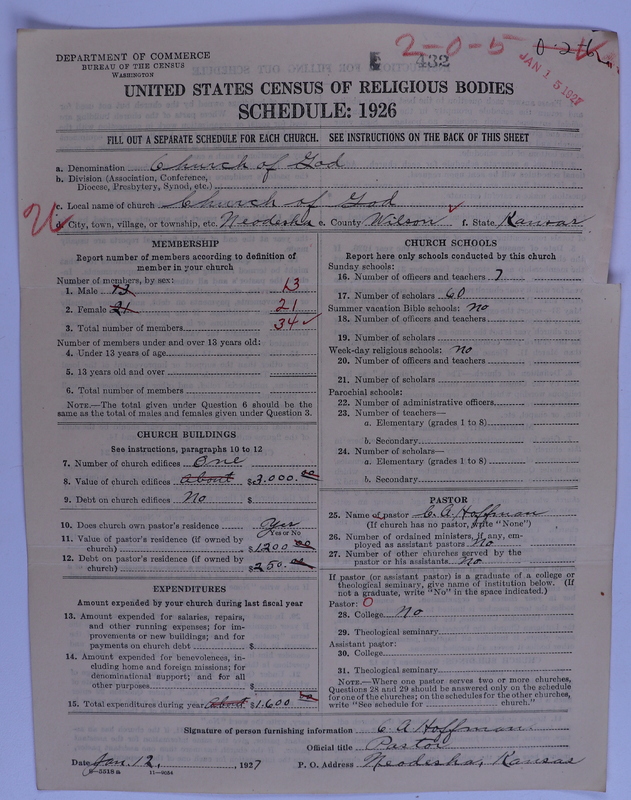 DEPARTMENT OF COMMERCE
BUREAU OF THE CENSUS
WASHINGTON
432
2-0-5
JAN 13 1927
UNITED STATES CENSUS OF RELIGIOUS BODIES
SCHEDULE: 1926
FILL OUT A SEPARATE SCHEDULE FOR EACH CHURCH. SEE INSTRUCTIONS ON THE BACK OF THIS SHEET
a. Denomination Church of God
b. Division (Association, Conference,
Diocese, Presbytery, Synod, etc.)
c. Local name of church Church of God
d. City, town, village, or township, etc. Neodesha e. County Wilson f. State Kansas
MEMBERSHIP
Report number of members according to definition of
member in your church
Number of members, by sex:
1. Male 13 13
2. Female 21 21
3. Total number of members 34
Number of members under and over 13 years old:
4. Under 13 years of age
5. 13 years old and over
6. Total number of members
NOTE.—The total given under Question 6 should be the
same as the total of males and females given under Question 3.
CHURCH BUILDINGS
See instructions, paragraphs 10 to 12
7. Number of church edifices One
8. Value of church edifices about $3.000.00
9. Debt on church edifices No $
10. Does church own pastor's residence Yes
Yes or No
11. Value of pastor's residence (if owned by
church) $1200 00
12. Debt on pastor's residence (if owned by
church) $250.00
EXPENDITURES
Amount expended by your church during last fiscal year
13. Amount expended for salaries, repairs,
and other running expenses; for im-
provements or new buildings; and for
payments on church debt $
14. Amount expended for benevolences, in-
cluding home and foreign missions; for
denominational support; and for all
other purposes $
15. Total expenditures during year about $1.600 00
CHURCH SCHOOLS
Report here only schools conducted by this church
Sunday schools:
16. Number of officers and teachers 7
17. Number of scholars 60
Summer vacation Bible schools: No
18. Number of officers and teachers
19. Number of scholars
Week-day religious schools: No
20. Number of officers and teachers
21. Number of scholars
Parochial schools:
22. Number of administrative officers
23. Number of teachers—
a. Elementary (grades 1 to 8)
b. Secondary
24. Number of scholars—
a. Elementary (grades 1 to 8)
b. Secondary
PASTOR
25. Name of pastor C. A Hoffman
(If church has no pastor, write "None")
26. Number of ordained ministers, if any, em-
ployed as assistant pastors No
27. Number of other churches served by the
pastor or his assistants No
If pastor (or assistant pastor) is a graduate of a college or
theological seminary, give name of institution below. (If
not a graduate, write "No" in the space indicated.)
Pastor: O
28. College No
29. Theological seminary
Assistant pastor:
30. College
31. Theological seminary
NOTE.—Where one pastor serves two or more churches,
Questions 28 and 29 should be answered only on the schedule
for one of the churches; on the schedules for the other churches,
write "See schedule for church."
Signature of person furnishing information C A Hoffman
Official title Pastor
Date Jan. 12, 1927 P. O. Address Neodesha, Kansas
8-5518 a 11-9054